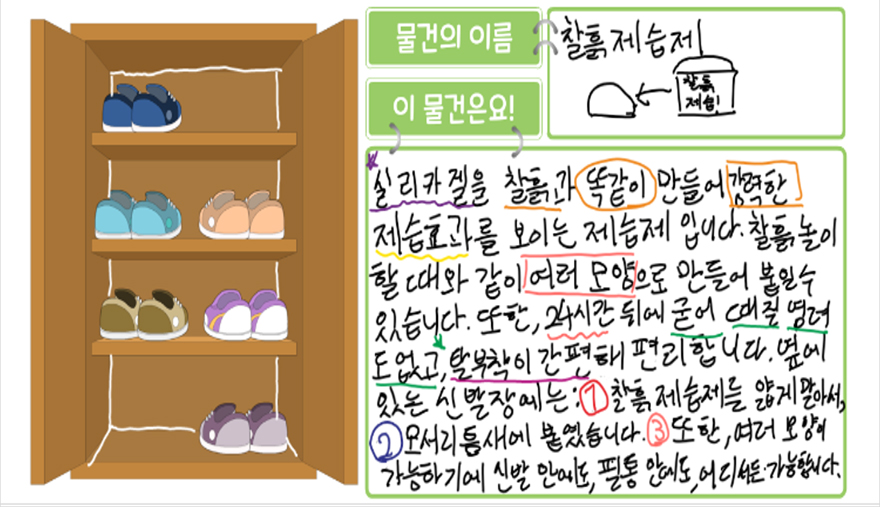 물건의 이름
찰흙 제습제
찰흙
제습!
이 물건은요!
실리카 겔을 찰흙과 똑같이 만들어 강력한
제습효과를 보이는 제습제 입니다. 찰흙 놀이
할 때와 같이 여러 모양으로 만들어 붙일 수
있습니다. 또한, 24시간 뒤에 굳어 때질 염려
도 없고, 탈부착이 간편해 편리합니다. 옆에
있는 신발장에는: ① 찰흙 제습제를 얇게 말아서,
② 모서리 틈새에 붙였습니다. ③ 또한, 여러 모양이
가능하기에 신발 안에도, 필통 안에도, 어디서든 가능합니다.